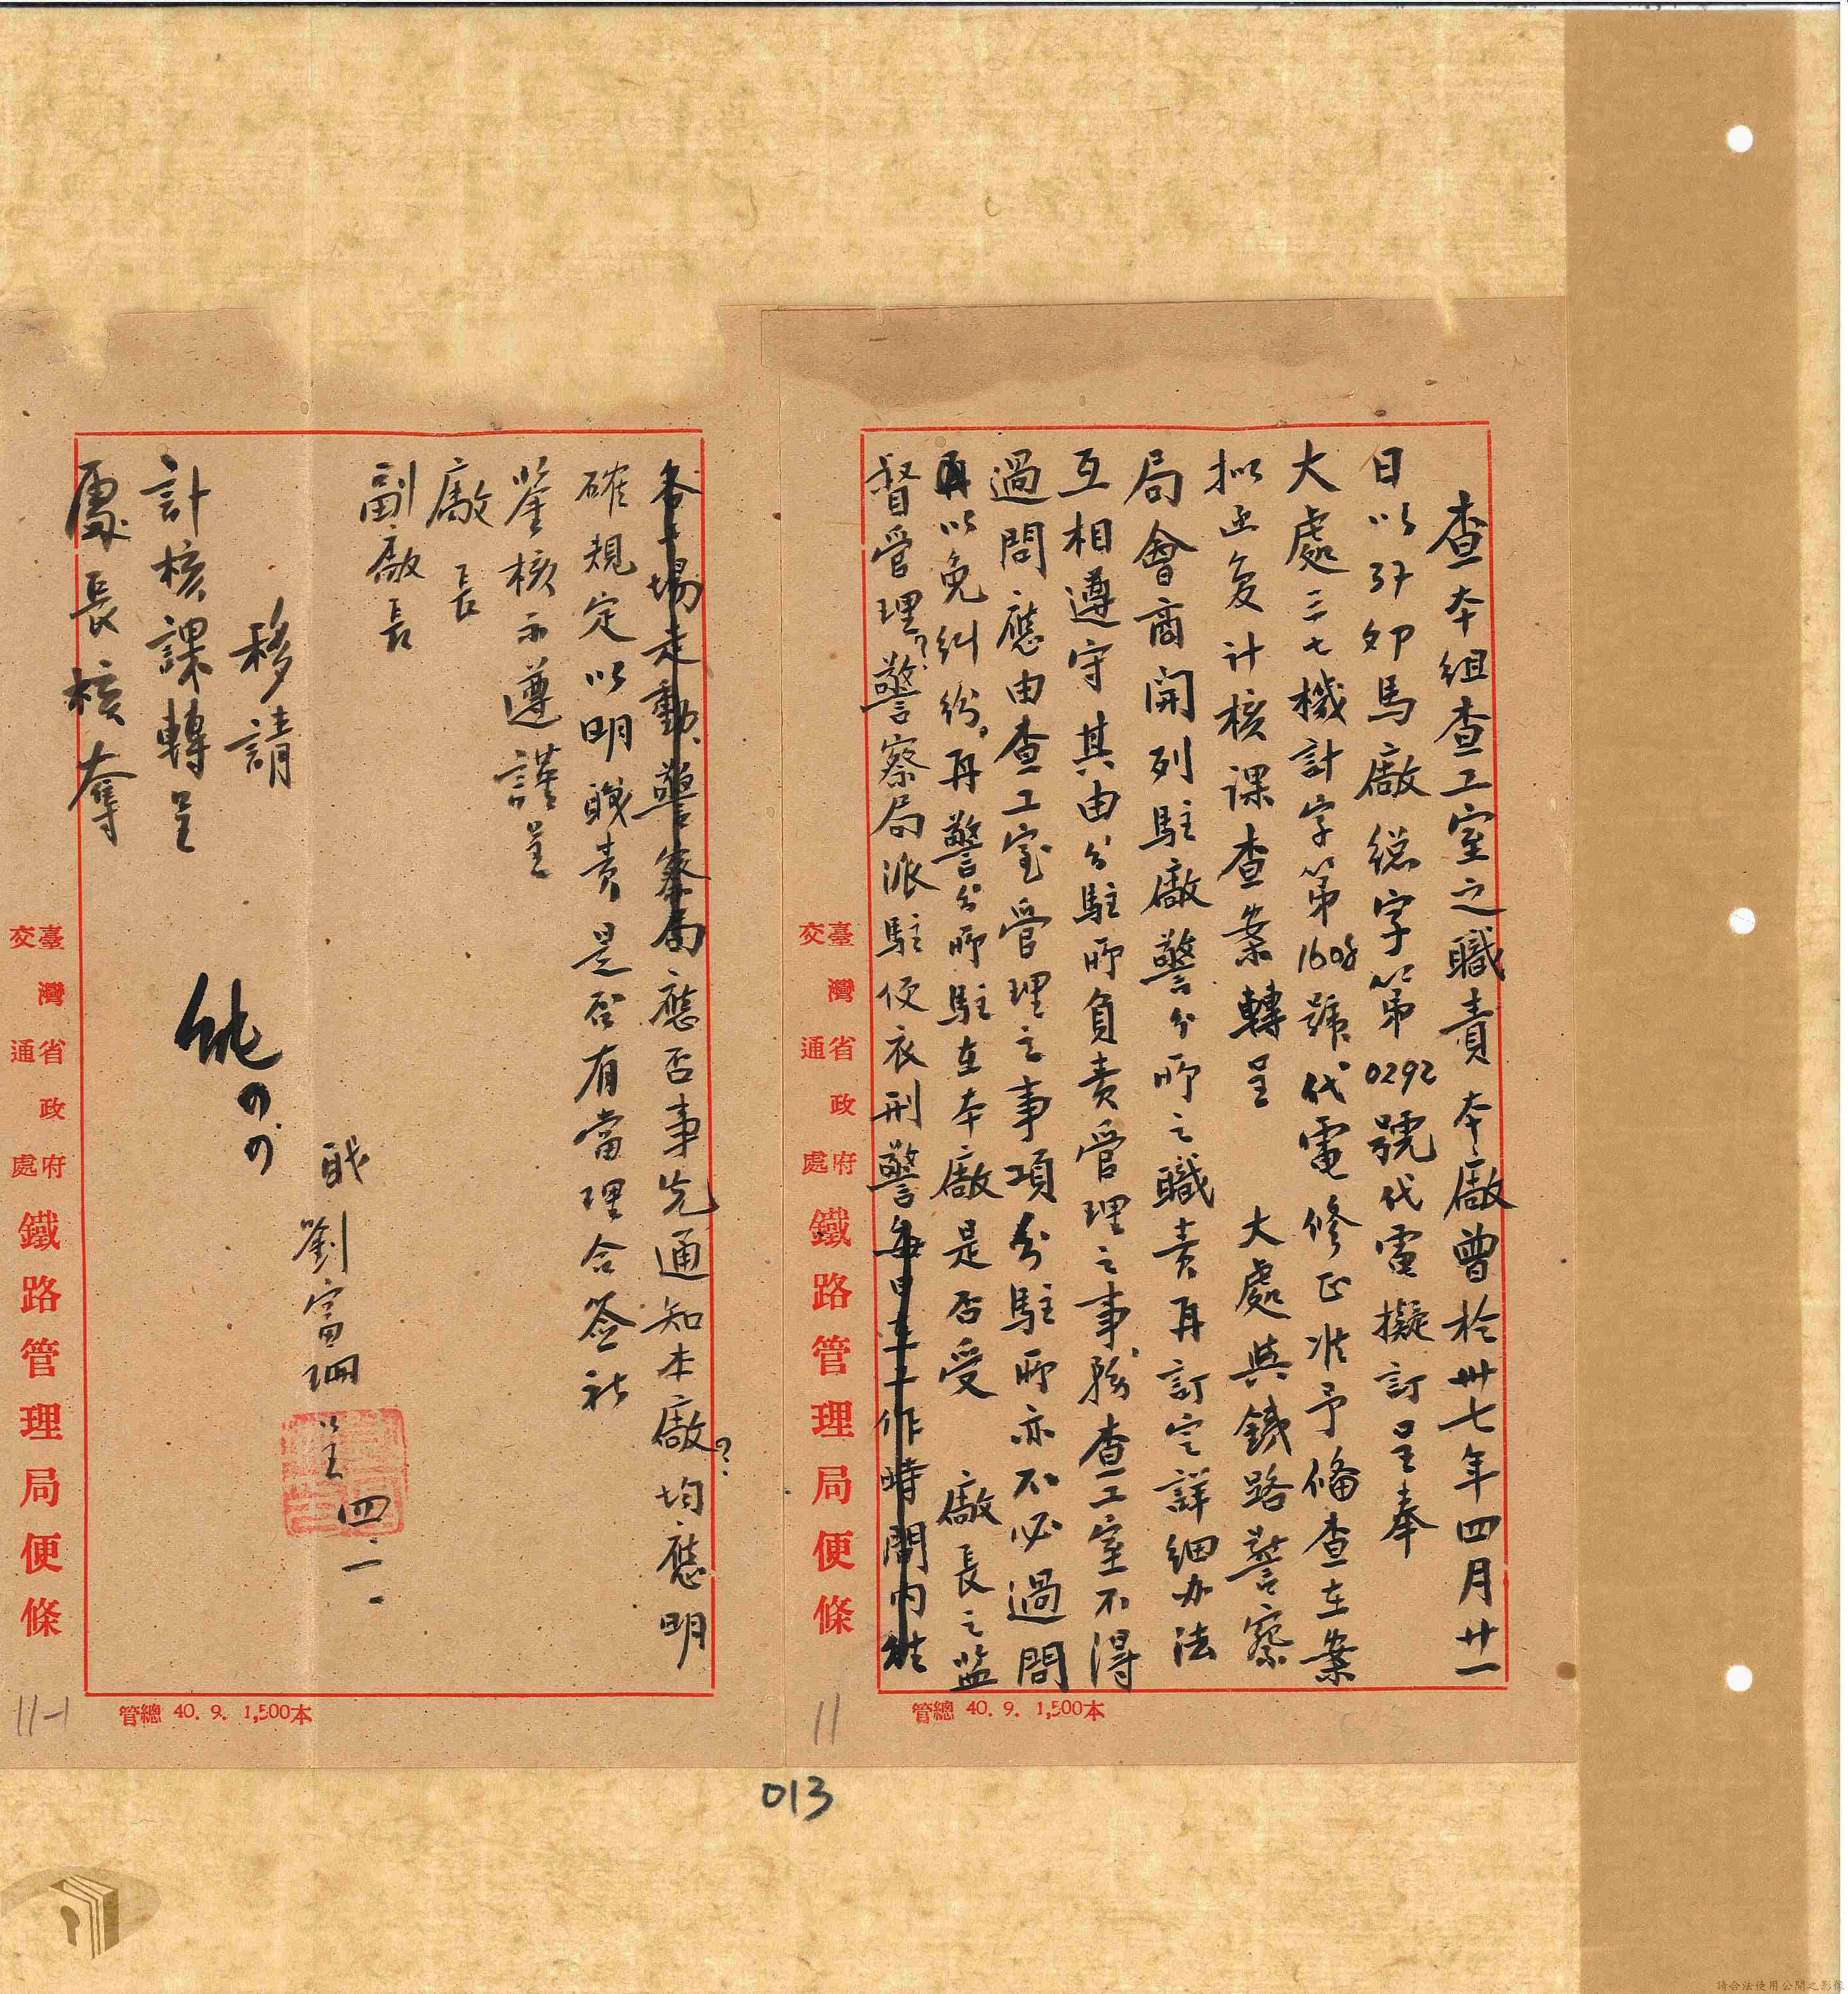 查本組查工室之職責本廠曾於卅七年四月廿一
日以37卯馬廠総字第0292號代電擬訂呈奉
大處三七機計字第1608號代電修正准予俻查在案
拟函复計核課查案轉呈 大處與鉄路警察
局會商開列駐廠警分所之職責再訂定詳細办法
互相遵守其由分駐所負責管理之事務查工室不得
過問應由查工室管理之事項分駐所亦不必過問
以免糾紛。再警分所駐在本廠是否受 廠長之监
督管理?警察局派駐便衣刑警每日在工作時間內往
各工場走動、警察局應否事先通知本廠?均應明
確規定以明戝責是否有當理合簽祈
鉴核示遵謹呈
廠長
副廠長
戝劉富珊呈四.一.
移請
計核課轉呈
處長核奪
臺灣省政府
交通處
鐵路管理局便條
臺灣省政府
交通處
鐵路管理局便條
管總 40. 9. 1,500本
管總 40. 9. 1,500本
11
11-1
013
請合法使用公開之影像